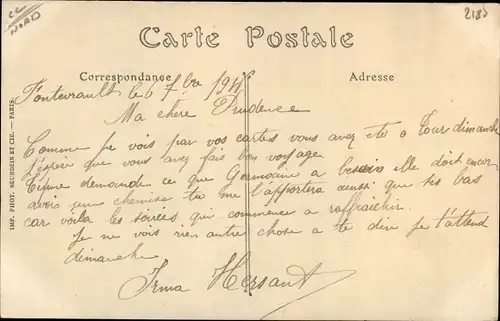 CC
NORD
2185
Carte Postale
Correspondance
Adresse
IMP. PHOT. NEURDEIN ET CIE. — PARIS.
Fontevrault le 6 7bre
Ma chère Prudence
Comme je vois par vos cartes vous avez ete a Tour dimanche
j'espère que vous avez fais bon voyage
demande ce que Germaine a besoin elle doit encor
avoir une chemise tu me l'apportera aussi que ses bas
car voila les soirées qui commence a raffraichir
Je ne vois rien autre chose a te dire je t'attend
dimanche
Irma Hersant